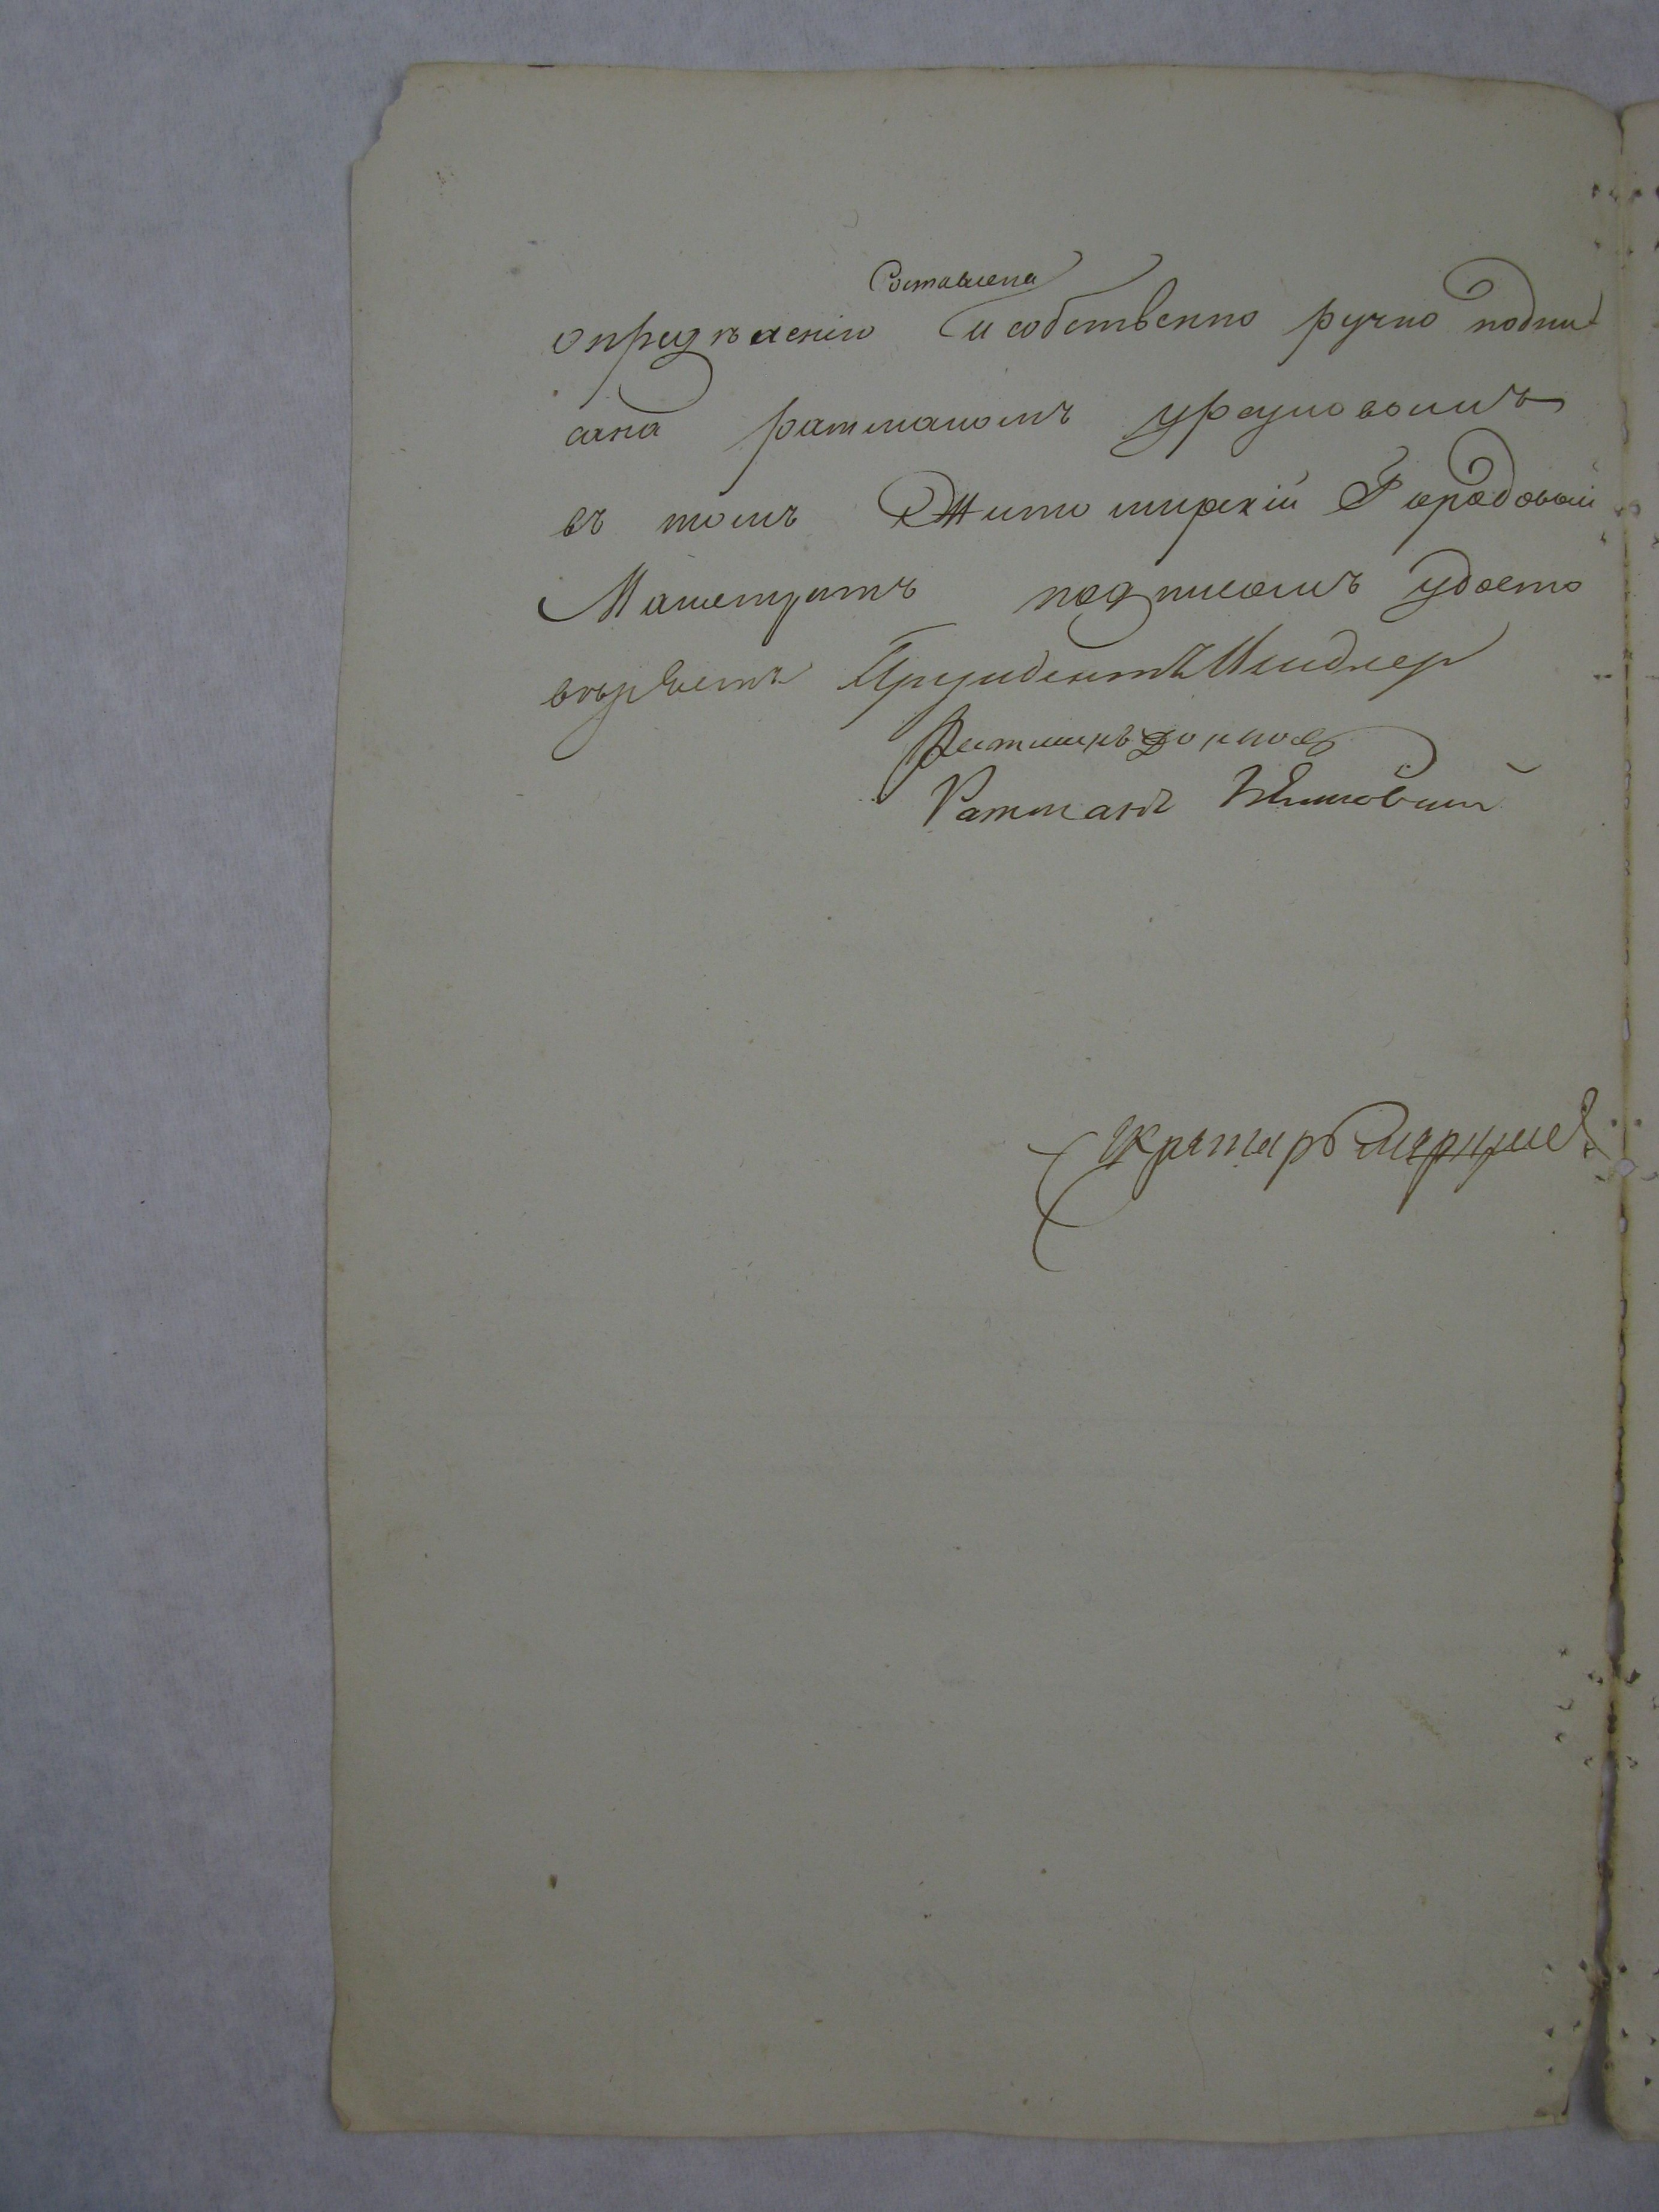 Составлена
определенiю и собственно ручно подпи
сана ратманомъ
въ томъ Житомирскiй Городовый
Магистратъ подписомъ удосто
вѣряетъ Президентъ
Ратманъ
Ратманъ
Секретарь